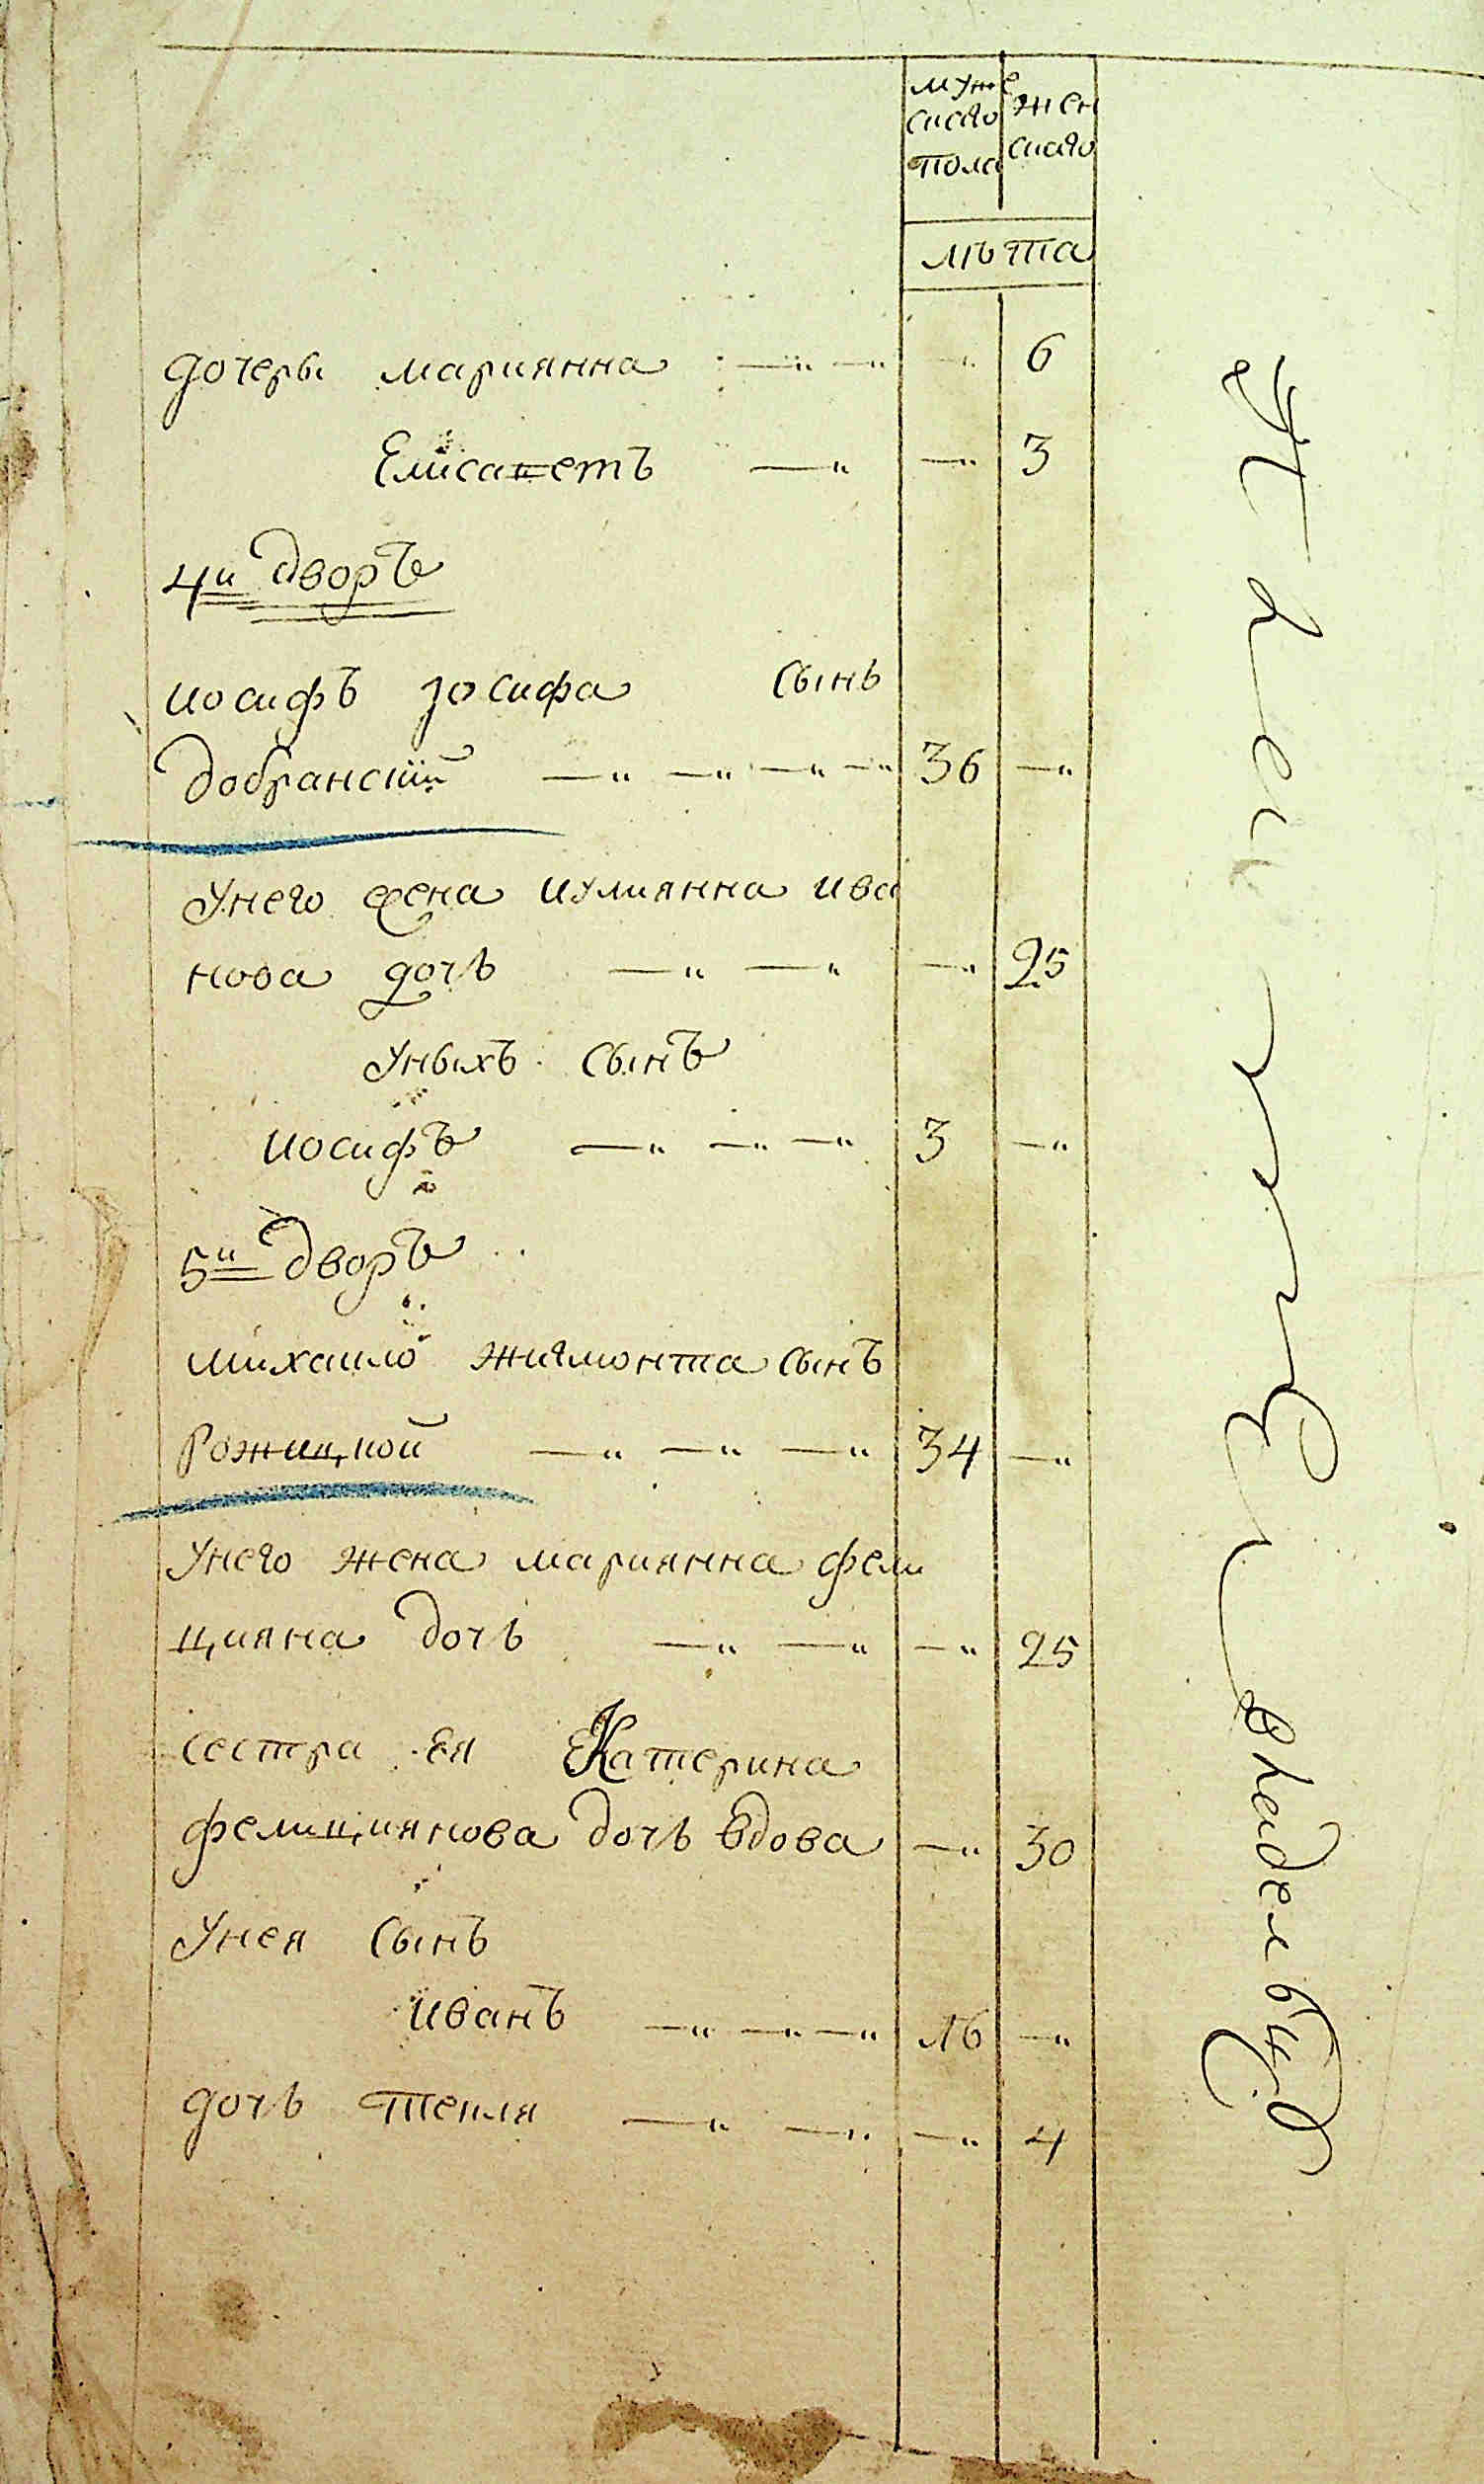 муже женскаго
скаго
пола
лѣта
дочеры марианна —„ —„ —„ 6
Елисаветъ —„ —„ 3
4й дворъ
иосифъ иосифа сынъ
добранский —„ —„ —„ —„ 36 —„
унего жена иулиянна ива
нова дочь —„ —„ —„ 25
уныхъ сынъ
иосифъ —„ —„ —„ 3 —„
5й дворъ
михаило жигмонта сынъ
Рожицкой —„ —„ —„ 34 —„
унего жена мариянна фели
цияна дочь —„ —„ —„ 25
сестра ея Катерина
фелициянова дочь вдова —„ 30
унея сынъ
иванъ —„ —„ —„ 16 —„
дочь текля —„ —„ —„ 4